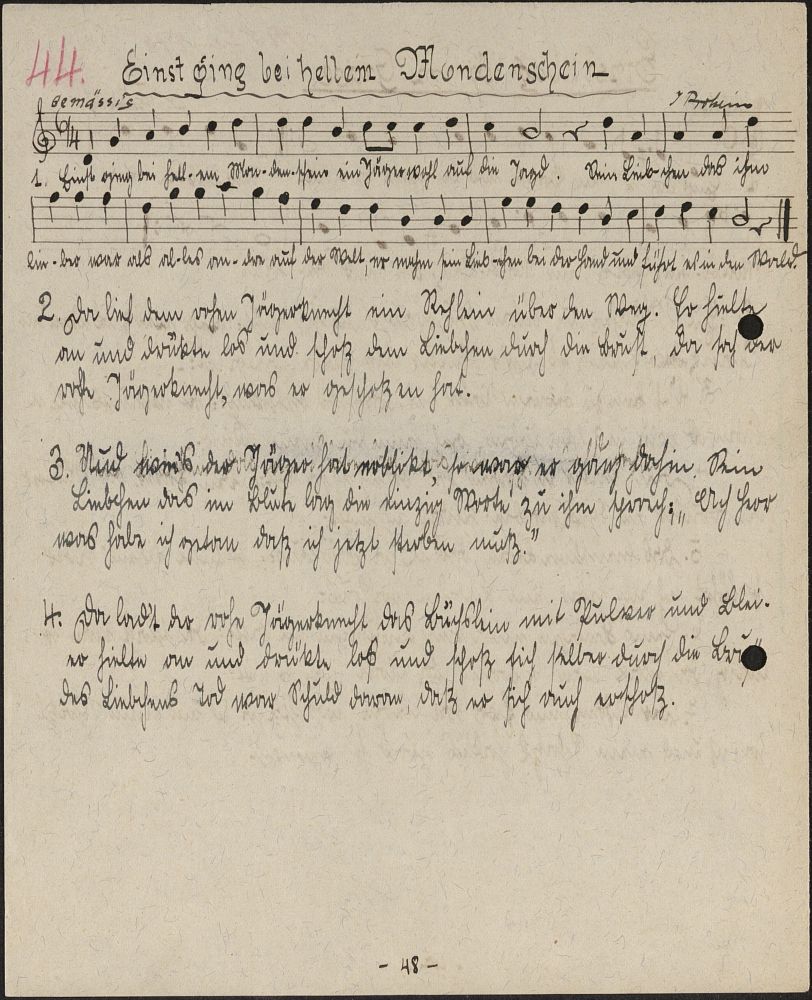 44. Einst ging bei hellem Mondenschein
Gemässig
6/4
1. Einst ging bei hell-em Mon-den-schein ein Jäger wohl auf die Jagd. Sein Lieb-chen das ihm
lie-ber war als al-les an-dre auf der Welt, er nahm sein Lieb-chen bei der Hand und führt es in den Wald.
2. Da lief dem rohen Jägerknecht ein Rehlein über den Weg. Er hielte
an und drükte los und schoß dem Liebchen durch die Brust, da sah der
rohe Jägerknecht, was er geschoßen hat.
3. Und wie's der Jäger hat erblikt, so war er ganz dahin. Sein
Liebchen das im Blute lag die einzig Worte zu ihm sprach: „Ach Herr
was habe ich getan daß ich jetzt sterben muß."
4. Da lad't der rohe Jägerknecht das Büchslein mit Pulver und Blei.
er hielte an und drükte los und schoß sich selber durch die
des Liebchens Tod war Schuld daran, daß er sich auch erschoß.
- 48 -